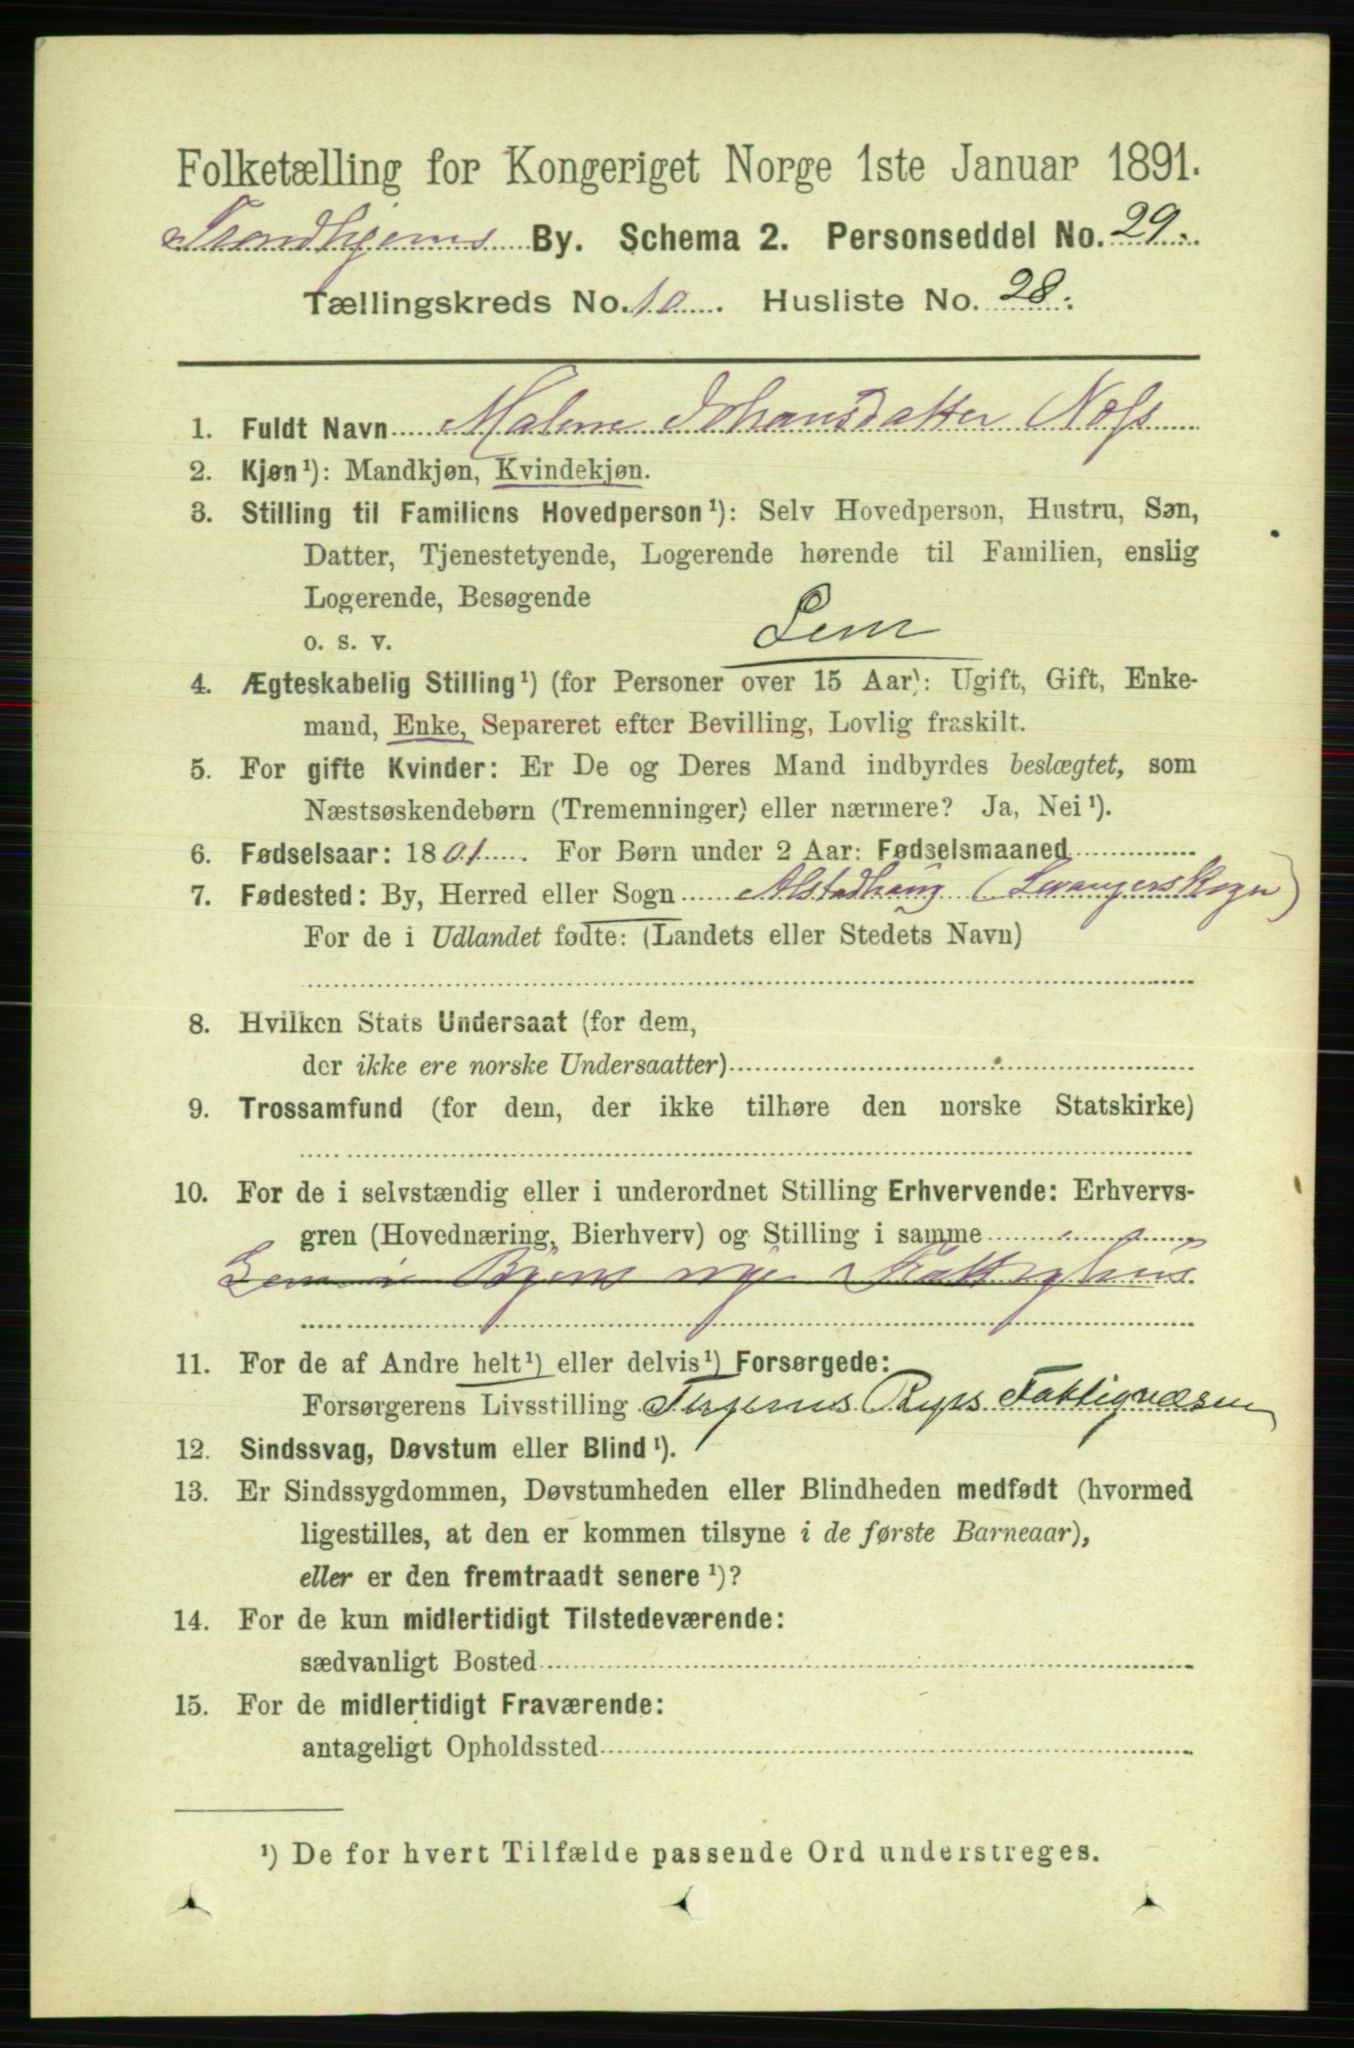 Folketælling for Kongeriget Norge 1ste Januar 1891.
Trondhjems By. Schema 2. Personseddel No. 29.
Tællingskreds No. 10. Husliste No. 28.
1. Fuldt Navn Malene Johansdatter Næss
2. Kjøn¹): Mandkjøn, Kvindekjøn.
3. Stilling til Familiens Hovedperson¹): Selv Hovedperson, Hustru, Søn,
Datter, Tjenestetyende, Logerende hørende til Familien, enslig
Logerende, Besøgende
o. s. v. Lem
4. Ægteskabelig Stilling¹) (for Personer over 15 Aar): Ugift, Gift, Enke-
mand, Enke, Separeret efter Bevilling, Lovlig fraskilt.
5. For gifte Kvinder: Er De og Deres Mand indbyrdes beslægtet, som
Næstsøskendebørn (Tremenninger) eller nærmere? Ja, Nei¹).
6. Fødselsaar: 1801. For Børn under 2 Aar: Fødselsmaaned
7. Fødested: By, Herred eller Sogn Alstadhaug (Levangers Sogn)
For de i Udlandet fødte: (Landets eller Stedets Navn)
8. Hvilken Stats Undersaat (for dem,
der ikke ere norske Undersaatter)
9. Trossamfund (for dem, der ikke tilhøre den norske Statskirke)
10. For de i selvstændig eller i underordnet Stilling Erhvervende: Erhvervs-
gren (Hovednæring, Bierhverv) og Stilling i samme
Lem i Byens nye Fattighus
11. For de af Andre helt¹) eller delvis¹) Forsørgede:
Forsørgerens Livsstilling Fattigvæsen
12. Sindssvag, Døvstum eller Blind¹).
13. Er Sindssygdommen, Døvstumheden eller Blindheden medfødt (hvormed
ligestilles, at den er kommen tilsyne i de første Barneaar),
eller er den fremtraadt senere¹)?
14. For de kun midlertidigt Tilstedeværende:
sædvanligt Bosted
15. For de midlertidigt Fraværende:
antageligt Opholdssted
¹) De for hvert Tilfælde passende Ord understreges.